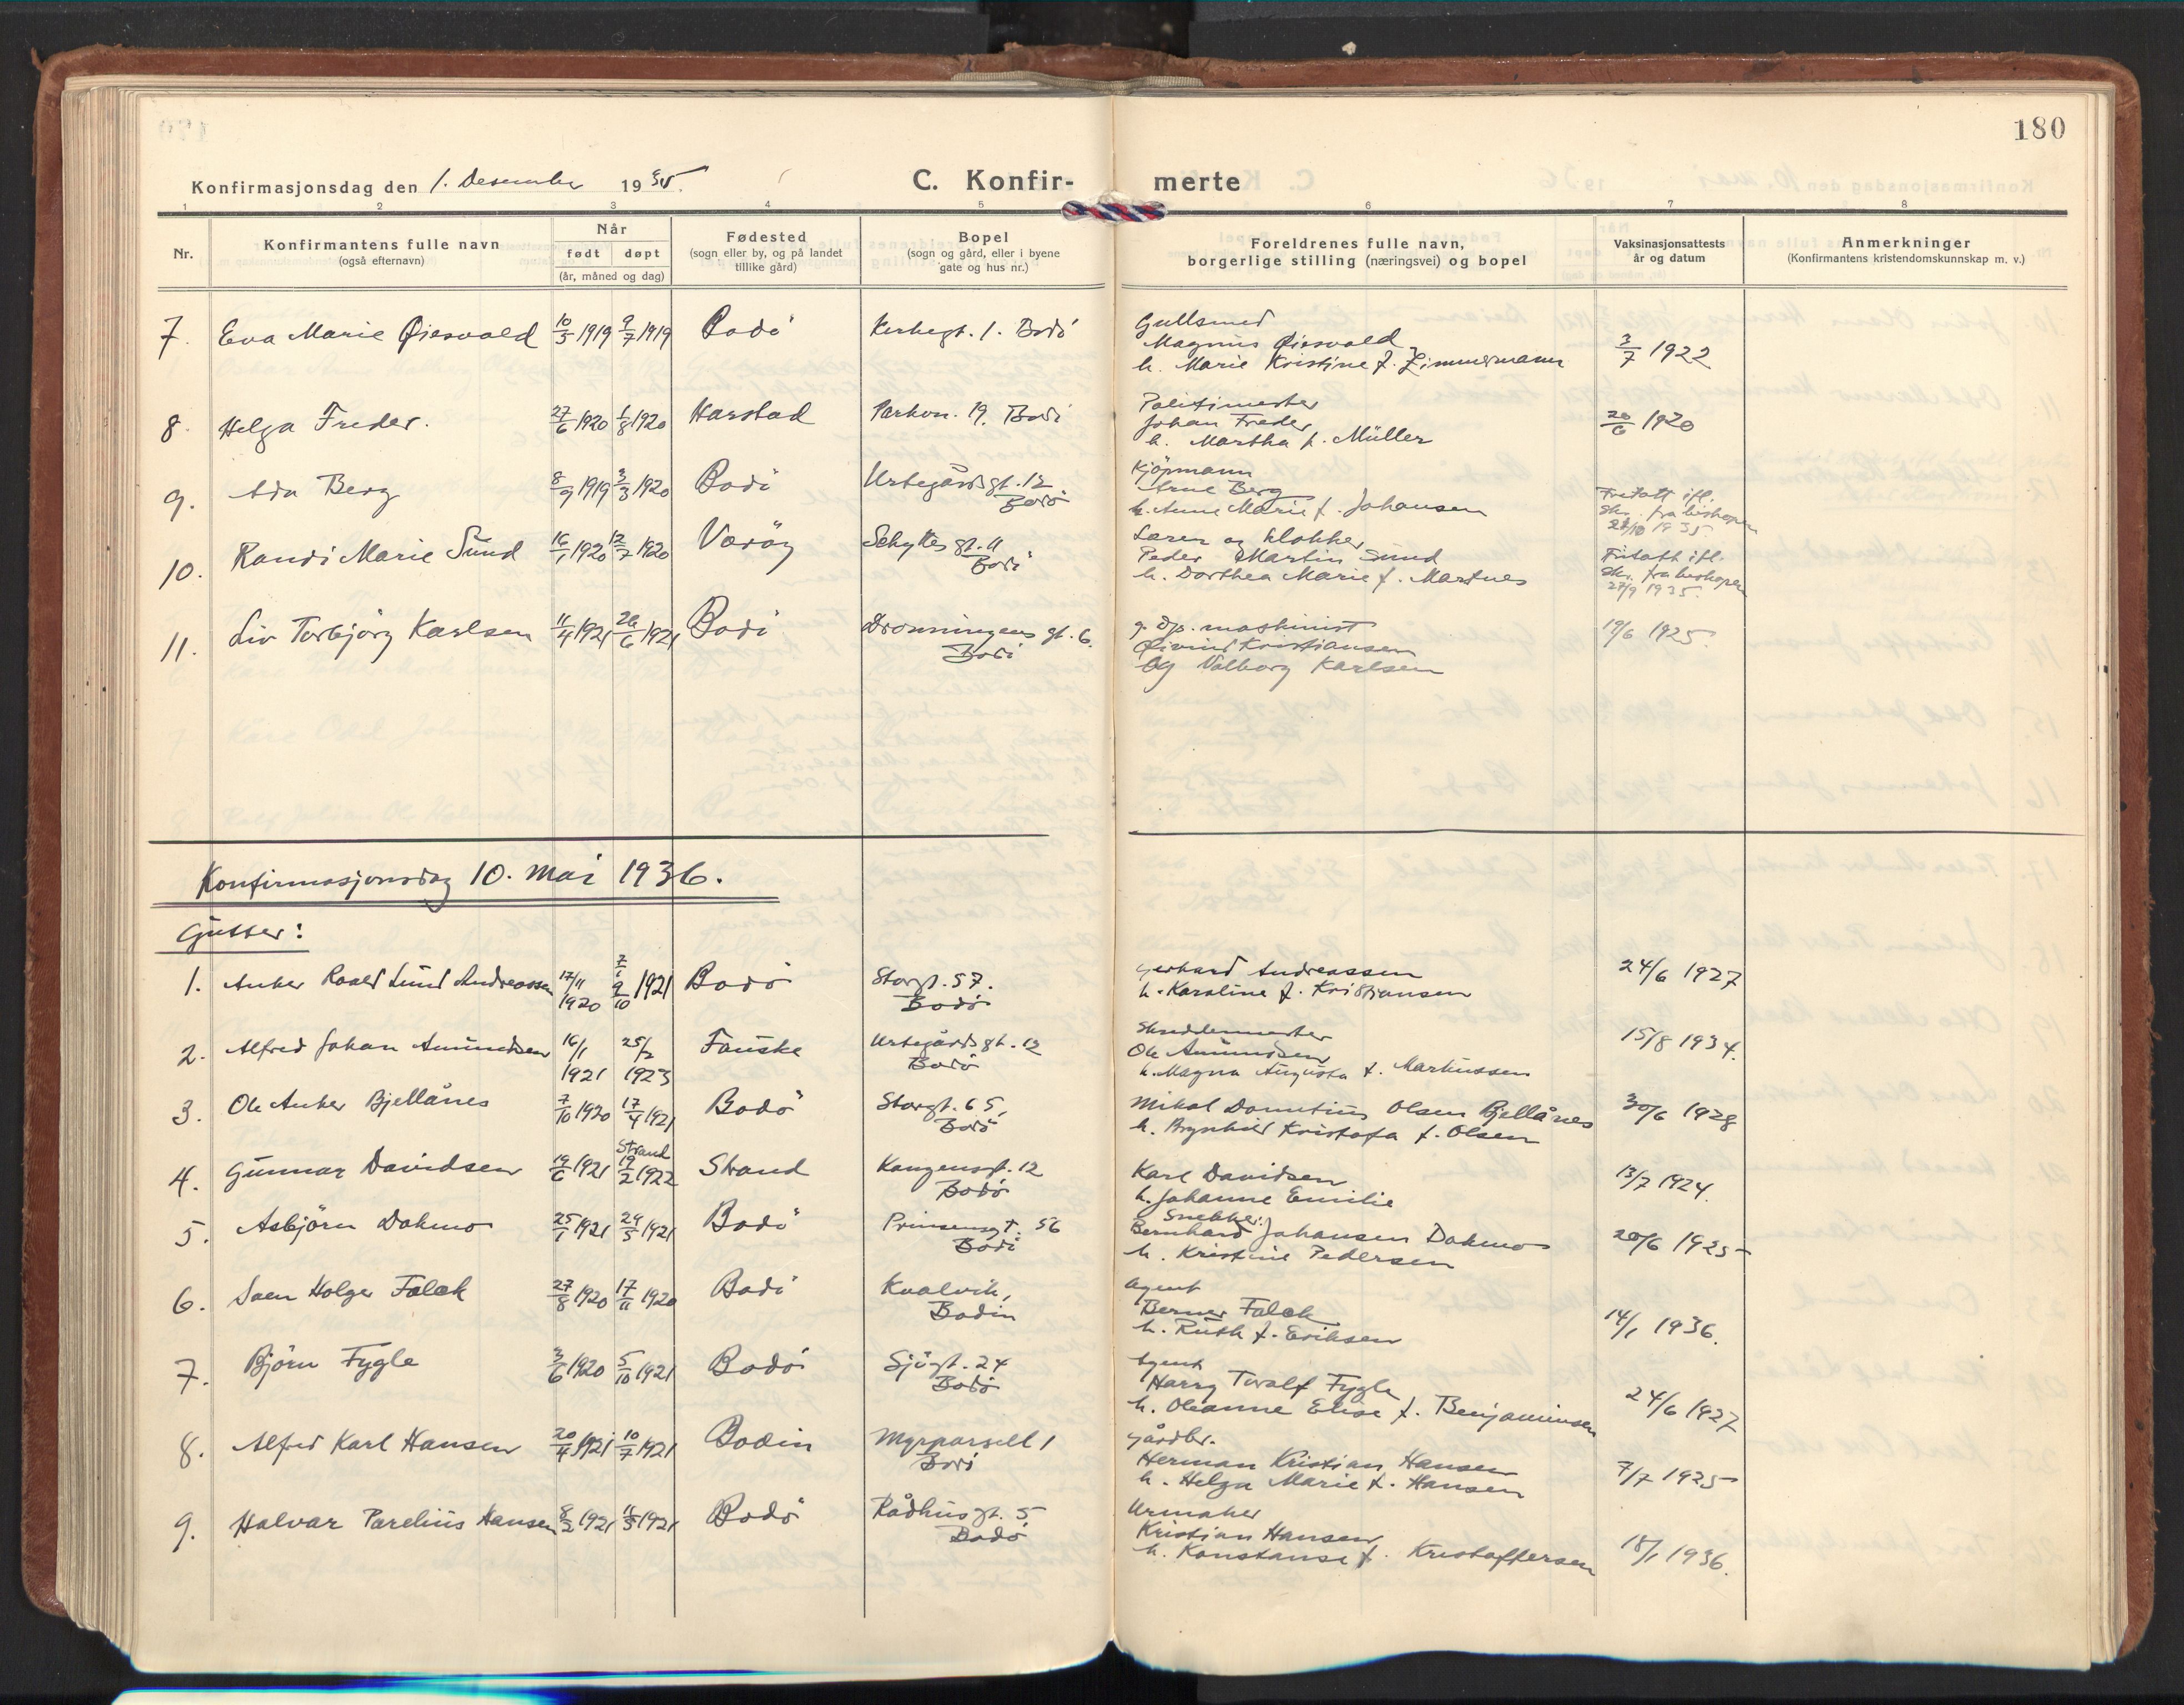 180
Konfirmasjonsdag den 1. Desember 1935.
C. Konfir- merte
1 2 3 4 5 6 7 8
Nr.
Konfirmantens fulle navn
(også efternavn)
Når
født døpt
(år, måned og dag)
Fødested
(sogn eller by, og på landet
tillike gård)
Bopel
(sogn og gård, eller i byene
gate og hus nr.)
Foreldrenes fulle navn,
borgerlige stilling (næringsvei) og bopel
Vaksinasjonsattests
år og datum
Anmerkninger
(Konfirmantens kristendomskunnskap m. v.)
7. Eva Marie Øiesvold 10/5 1919 9/7 1919 Bodö Kirkegt. 1. Bodö
Gullsmed
Magnus Øiesvold
h. Marie Kristine f. Zimmermann
3/7 1922
8. Helga Freder. 27/6 1920 1/8 1920 Harstad Parkvn. 19. Bodö
Politimester
Johan Freder
h. Martha f. Müller
26/6 1920
9. Ada Berg 8/9 1919 3/3 1920 Bodö Urtegårdsgt. 12
Bodö
Kjöpmann
Arne Berg
h. Anne Marie f. Johansen
Fritatt ifl.
skr. fra bishopen
21/10 1935
10. Randi Marie Sund 16/1 1920 12/7 1920 Væröy Schyttesgt. 11
Bodö
Lærer og klokker
Peder Martin Sund
h. Dorthea Marie f. Martnes
Fritatt ifl.
skr. fra bishopen
27/9 1935.
11. Liv Torbjörg Karlsen 11/4 1921 26/6 1921 Bodö Dronningens gt. 6.
Bodö
g. dp. maskinist
Øivind Kristiansen
og Valborg Karlsen
19/6 1925.
Konfirmasjonsdag 10. mai 1936.
Gutter:
1. Anker Roald Lund Andreassen 17/11 1920 9/10 1921 Bodö Storgt. 57.
Bodö
Gerhard Andreassen
h. Karoline f. Kristiansen
24/6 1927
2. Alfred Johan Amundsen 16/1 1921 25/2 1923 Fauske Urtegårdsgt. 12
Bodö
Skreddermester
Ole Amundsen
h. Magna Augusta f. Markussen
15/8 1934.
3. Ole Anker Bjellånes 7/10 1920 17/4 1921 Bodö Storgt. 65,
Bodö
Mikal Dometius Olsen Bjellånes
h. Brynhild Kristofa f. Olsen
30/6 1928
4. Gunnar Davidsen 19/6 1921 Strand 19/2 1922 Strand Kongensgt. 12
Bodö
Karl Davidsen
h. Johanne Emilie
13/7 1924.
5. Asbjörn Dokmo 25/1 1921 24/5 1921 Bodö Prinsensgt. 56
Bodö
Snekker:
Bernhard Johansen Dokmo
h. Kristine Pedersen
20/6 1925
6. Holger Falck 27/8 1920 17/11 1920 Bodö Kvalvik,
Bodin
Agent
Berner Falck
h. Ruth f. Eriksen
14/1 1936.
7. Björn Fygle 3/6 1920 5/10 1921 Bodö Sjögt. 24
Bodö
Agent
Harry Tvalf Fygle
h. Oleanne Elise f. Benjaminsen
24/6 1927
8. Alfred Karl Hansen 20/4 1921 10/7 1921 Bodin Myrparsell 1
Bodö
gårdbr.
Herman Kristian Hansen
h. Helga Marie f. Hansen
7/7 1925
9. Halvar Parelius Hansen 8/2 1921 11/5 1921 Bodö Rådhusgt. 5
Bodö
Urmaker
Kristian Hansen
h. Konstanse f. Kristoffersen
15/1 1936.